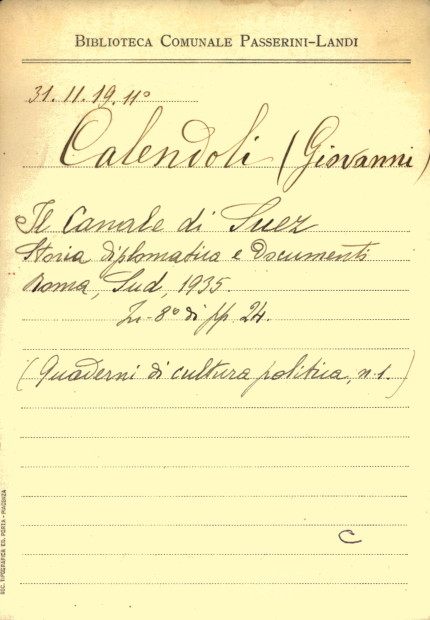 BIBLIOTECA COMUNALE PASSERINI-LANDI
31.11.19.11°
Calendoli (Giovanni)
Il Canale di Suez
Storia diplomatica e Documenti
Roma, Sud, 1935.
In-8° di pp 24.
(Quaderni di cultura politica, n.1.)
C
SOC. TIPOGRAFICA ED. PORTA - PIACENZA